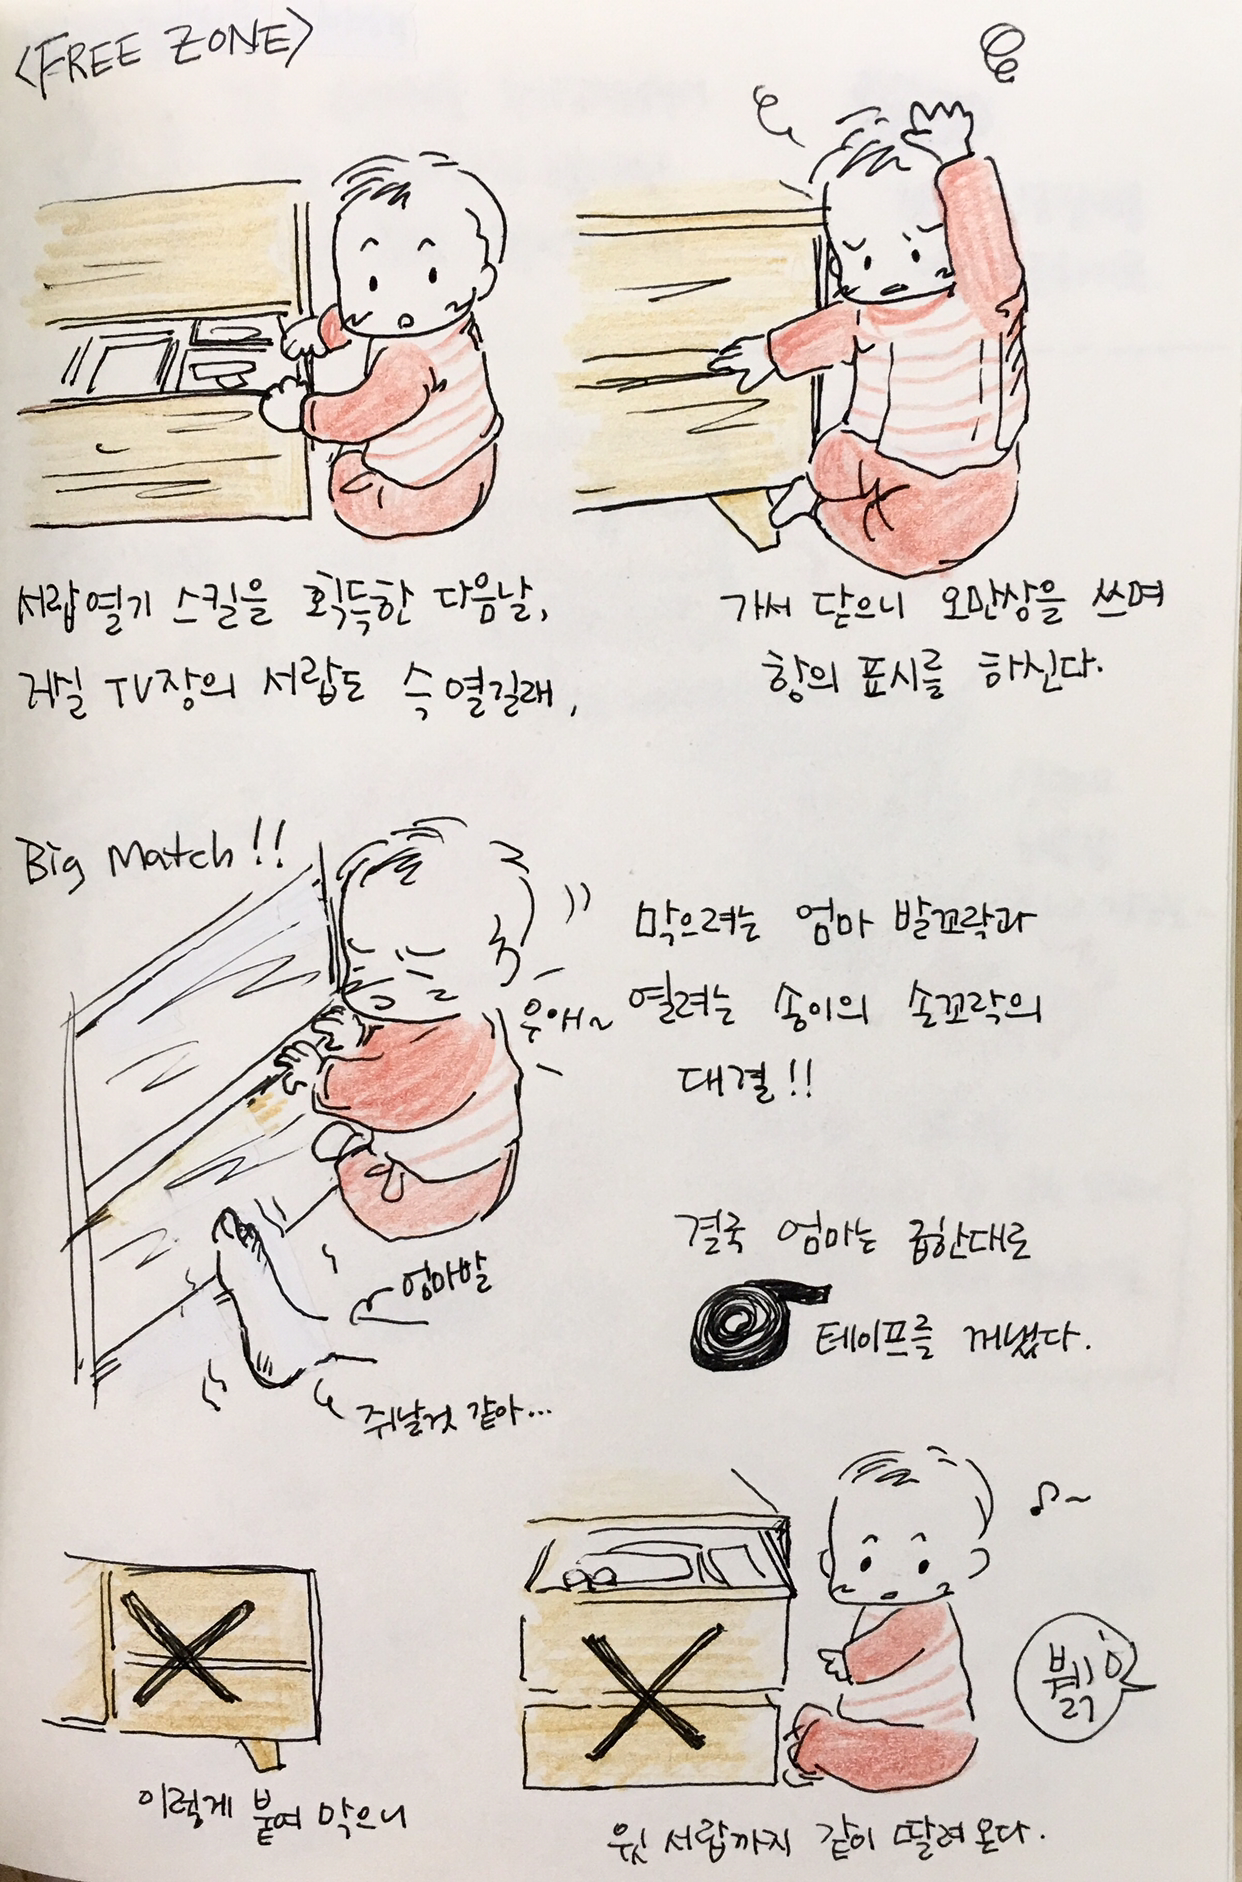 <FREE ZONE>
서랍열기 스킬을 획득한 다음날,
거실 TV장의 서랍도 슥 열길래,
가서 닫으니 오만상을 쓰며
항의 표시를 하신다.
Big Match!!
막으려는 엄마 발꼬락과
열려는 송이의 손꼬락의
대결!!
우애~
엄마발
쥐날것 같아...
결국 엄마는 급한대로
테이프를 꺼냈다.
이렇게 붙여 막으니
윗 서랍까지 같이 딸려온다.